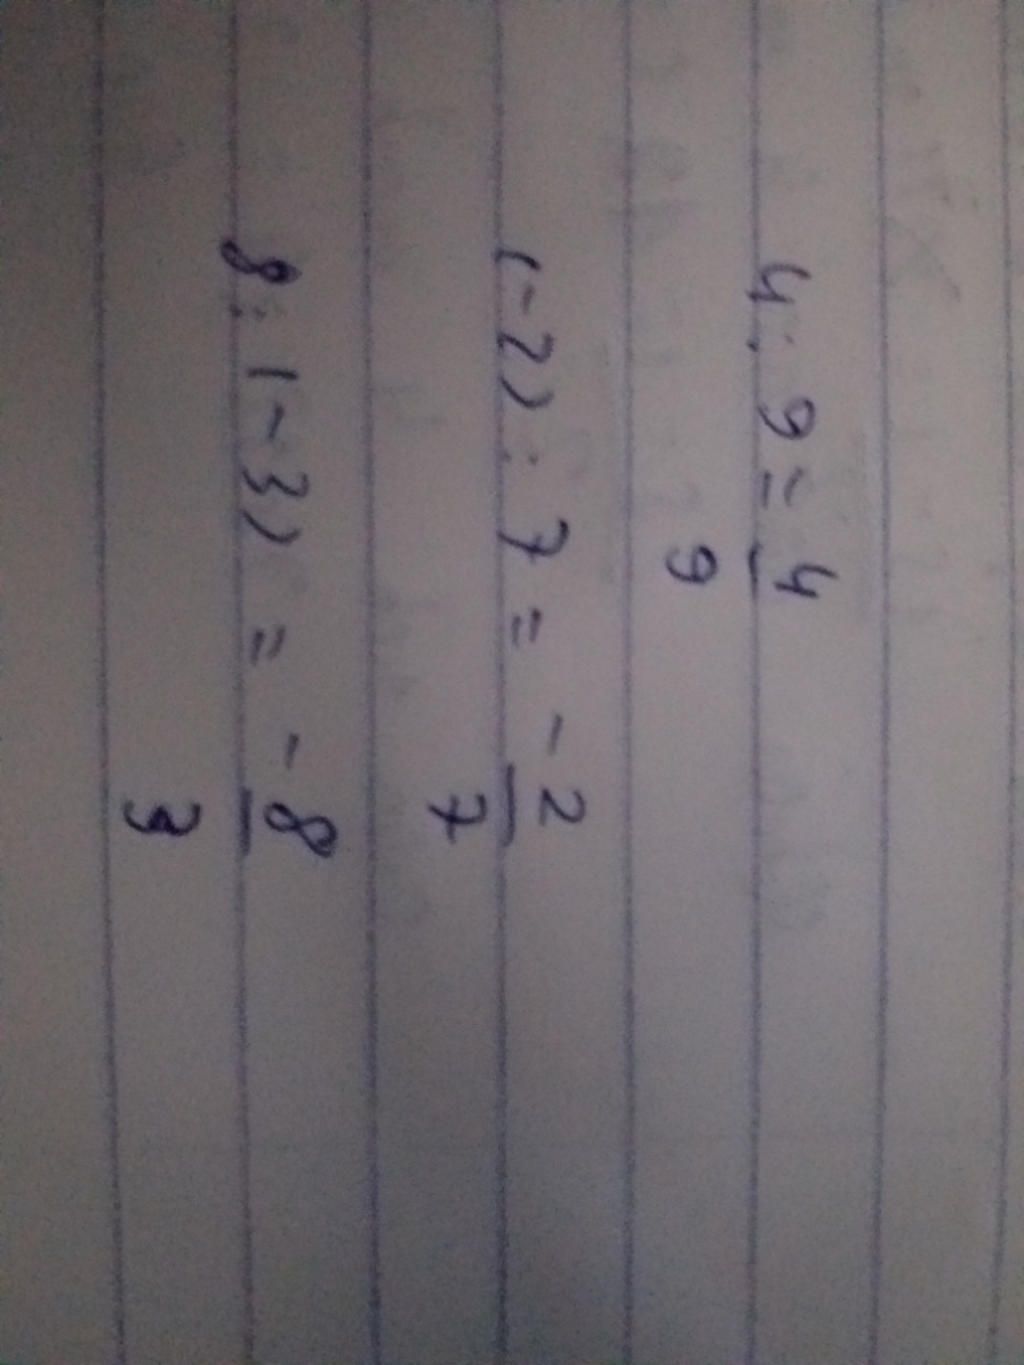 4 : 9 = 4/9
(-2) : 7 = -2/7
8 : (-3) = -8/3